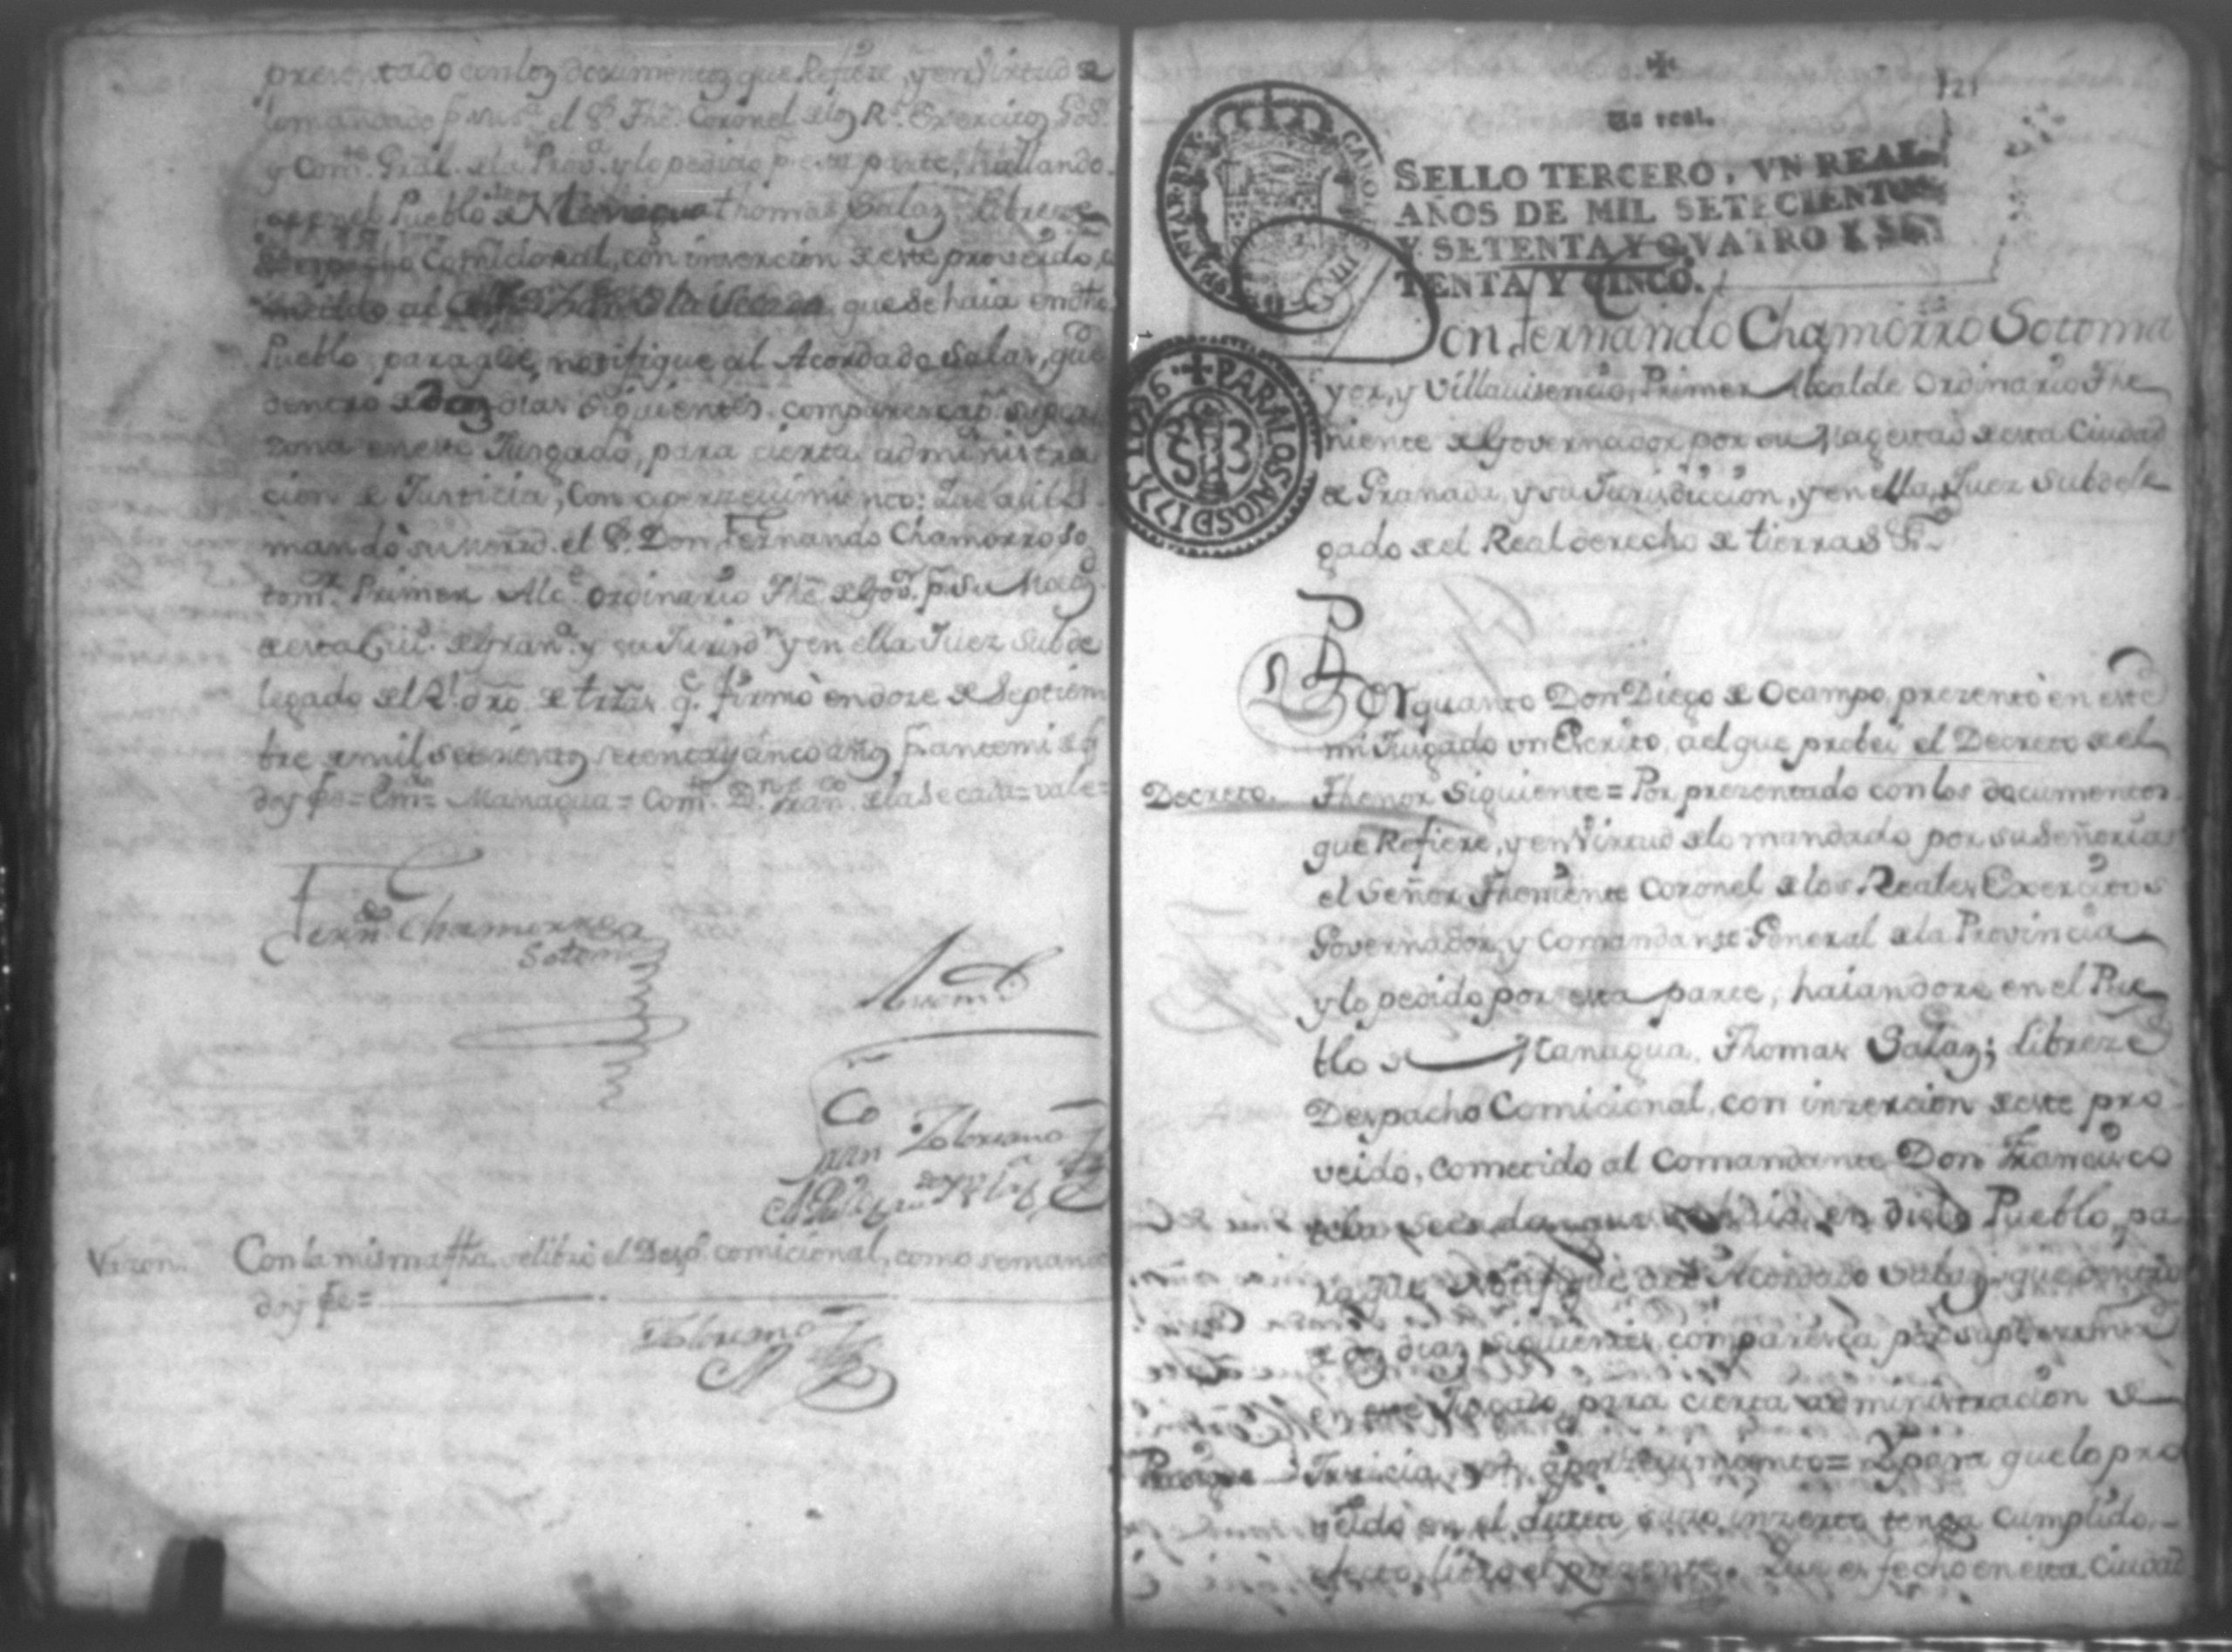 presentado con los documentos que Refiere, y en Virtud de
lo mandado pr su sa. el Sr. The. Coronel de los Rs. Exercitos Gov.
y Comte. Gral. de la Prova. y lo pedido pr esta parte, hallando
en el Pueblo de Thomas Salaz, Librese
Despacho Comicional, con insercion de este proveido, co
metido al que se haia en dho.
Pueblo, para que notifique al Acordado Salas, que
dentro de dos dias siguientes comparesca pr. su per
zona en este Jusgado, para cierta administra
cion de Justicia; Con apercevimiento: Que asi lo
mandó su merzd. el Sr. Don Fernando Chamorro So
tomr. Primer Alce. ordinario The. de Gov. pr su Magd.
de esta Ciud. de Grana. y su Jurisdn. y en ella Juez Subde
legado del Rl. dro. de trras. qe. firmó en doze de Septiem
bre de mil setecientos setenta y cinco años pr ante mi de q
doy fe = Emdo = Managua = Comte. Dn. Franco. de la Secada = vale =
Ferndo. Chamorro
Sotomr.
Ante mi
Con la misma fha. se libró el Despo. comicional, como se manda
doy fe =
✠
121
Un real.
SELLO TERCERO, VN REAL
AÑOS DE MIL SETECIENTOS
Y SETENTA Y QVATRO Y SE
TENTA Y CINCO.
PARA LOS AÑOS DE 1775 Y 1776
Don Fernando Chamorro Sotoma
yor, y Villavisencio, Primer Alcalde Ordinario The
niente de Governador por su Magestad de esta Ciudad
de Granada, y su Jurisdiccion, y en ella Juez Subdele
gado de el Real derecho de tierras &a.
POr quanto Don Diego de Ocampo, prezentó en este
mi Jusgado un Escrito, a el que probei el Decreto de el
Decreto. Thenor Siguiente = Por prezentado con los documentos
que Refiere, y en Virtud de lo mandado por su Señoria
el Señor Theniente Coronel de los Reales Exercitos
Governador, y Comandante General de la Provincia
y lo pedido por esta parte, haiandose en el Pue
blo de Managua, Thomas Salaz; Libreze
Despacho Comicional, con inzercion de este pro
veido, cometido al Comandante Don Francisco
de la Secada, que se haia en dicho Pueblo, pa
ra que Notifique a el Acordado Salaz, que dentro
de dos dias siguientes comparesca por su perzona
en este Jusgado, para cierta administracion de
Justicia, con apercevimiento = Y para que lo pro
veido en el Auto suso inzerto tenga cumplido
efecto, libro el prezente. Que es fecho en esta Ciudad